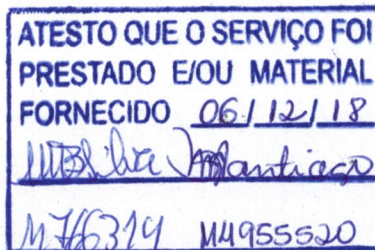 ATESTO QUE O SERVIÇO FOI
PRESTADO E/OU MATERIAL
FORNECIDO 06/12/18
Santiago
M4955520